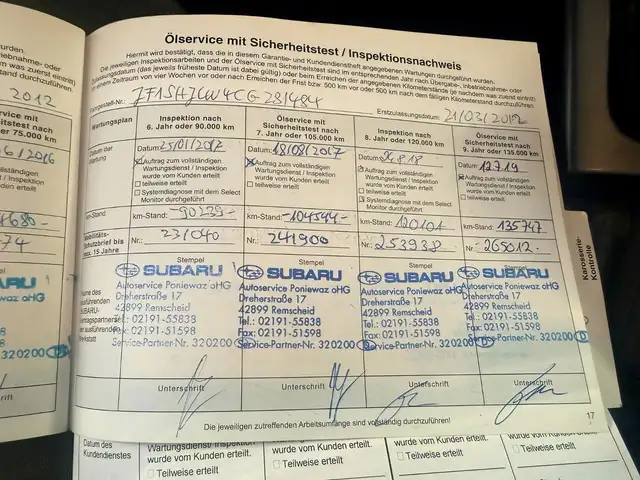 Ölservice mit Sicherheitstest / Inspektionsnachweis
Hiermit wird bestätigt, dass die in diesem Garantie- und Kundendienstheft angegebenen Wartungen durchgeführt wurden.
Die jeweiligen Inspektionsarbeiten und der Ölservice mit Sicherheitstest sind im entsprechenden Jahr nach Übergabe-, Inbetriebnahme- oder
Zulassungsdatum (das jeweils früheste Datum ist dabei gültig) oder beim Erreichen der angegebenen Kilometerstände (je nachdem was zuerst eintritt)
in einem Zeitraum von vier Wochen vor oder nach Erreichen der Frist bzw. 500 km vor oder 500 km nach dem fälligen Kilometerstand durchzuführen.
Fahrgestell-Nr.:
Erstzulassungsdatum: 21/03/2012
Wartungsplan
Inspektion nach
6. Jahr oder 90.000 km
Ölservice mit
Sicherheitstest nach
7. Jahr oder 105.000 km
Inspektion nach
8. Jahr oder 120.000 km
Ölservice mit
Sicherheitstest nach
9. Jahr oder 135.000 km
Datum der
Wartung
Datum: 25/01/2017
Auftrag zum vollständigen
Wartungsdienst / Inspektion
wurde vom Kunden erteilt
teilweise erteilt
Systemdiagnose mit dem Select
Monitor durchgeführt
Datum: 18/08/2017
Auftrag zum vollständigen
Wartungsdienst / Inspektion
wurde vom Kunden erteilt
teilweise erteilt
Datum: 6.8.18
Auftrag zum vollständigen
Wartungsdienst / Inspektion
wurde vom Kunden erteilt
teilweise erteilt
Systemdiagnose mit dem Select
Monitor durchgeführt
Datum: 12.7.19
Auftrag zum vollständigen
Wartungsdienst / Inspektion
wurde vom Kunden erteilt
teilweise erteilt
km-Stand: -90239-
km-Stand: -104544-
km-Stand: 120101
km-Stand: 135747
Mobilitäts-
Schutzbrief bis
max. 15 Jahre
Nr.: 231040
Nr.: 241900
Nr.: 253938
Nr.: 265012.-
Name des
ausführenden
SUBARU-
Vertragspartners
der ausführenden
Werkstatt
Stempel
SUBARU
Autoservice Poniewaz oHG
Dreherstraße 17
42899 Remscheid
Tel.: 02191-55838
Fax: 02191-51598
Service-Partner-Nr. 320200 D
Unterschrift
Stempel
SUBARU
Autoservice Poniewaz oHG
Dreherstraße 17
42899 Remscheid
Tel.: 02191-55838
Fax: 02191-51598
Service-Partner-Nr. 320200 D
Unterschrift
Stempel
SUBARU
Autoservice Poniewaz oHG
Dreherstraße 17
42899 Remscheid
Tel.: 02191-55838
Fax: 02191-51598
Service-Partner-Nr. 320200 D
Unterschrift
Stempel
SUBARU
Autoservice Poniewaz oHG
Dreherstraße 17
42899 Remscheid
Tel.: 02191-55838
Fax: 02191-51598
Service-Partner-Nr. 320200 D
Unterschrift
Die jeweiligen zutreffenden Arbeitsumfänge sind vollständig durchzuführen!
17
Karosserie-
Kontrolle
2012
mit
nach
75.000 km
320200
Datum des
Kundendienstes
Wartungsdienst / Inspektion
wurde vom Kunden erteilt.
Teilweise erteilt
wurde vom Kunden erteilt.
Teilweise erteilt
wurde vom Kunden erteilt.
Teilweise erteilt
wurde vom Kunden erteilt.
Teilweise erteilt